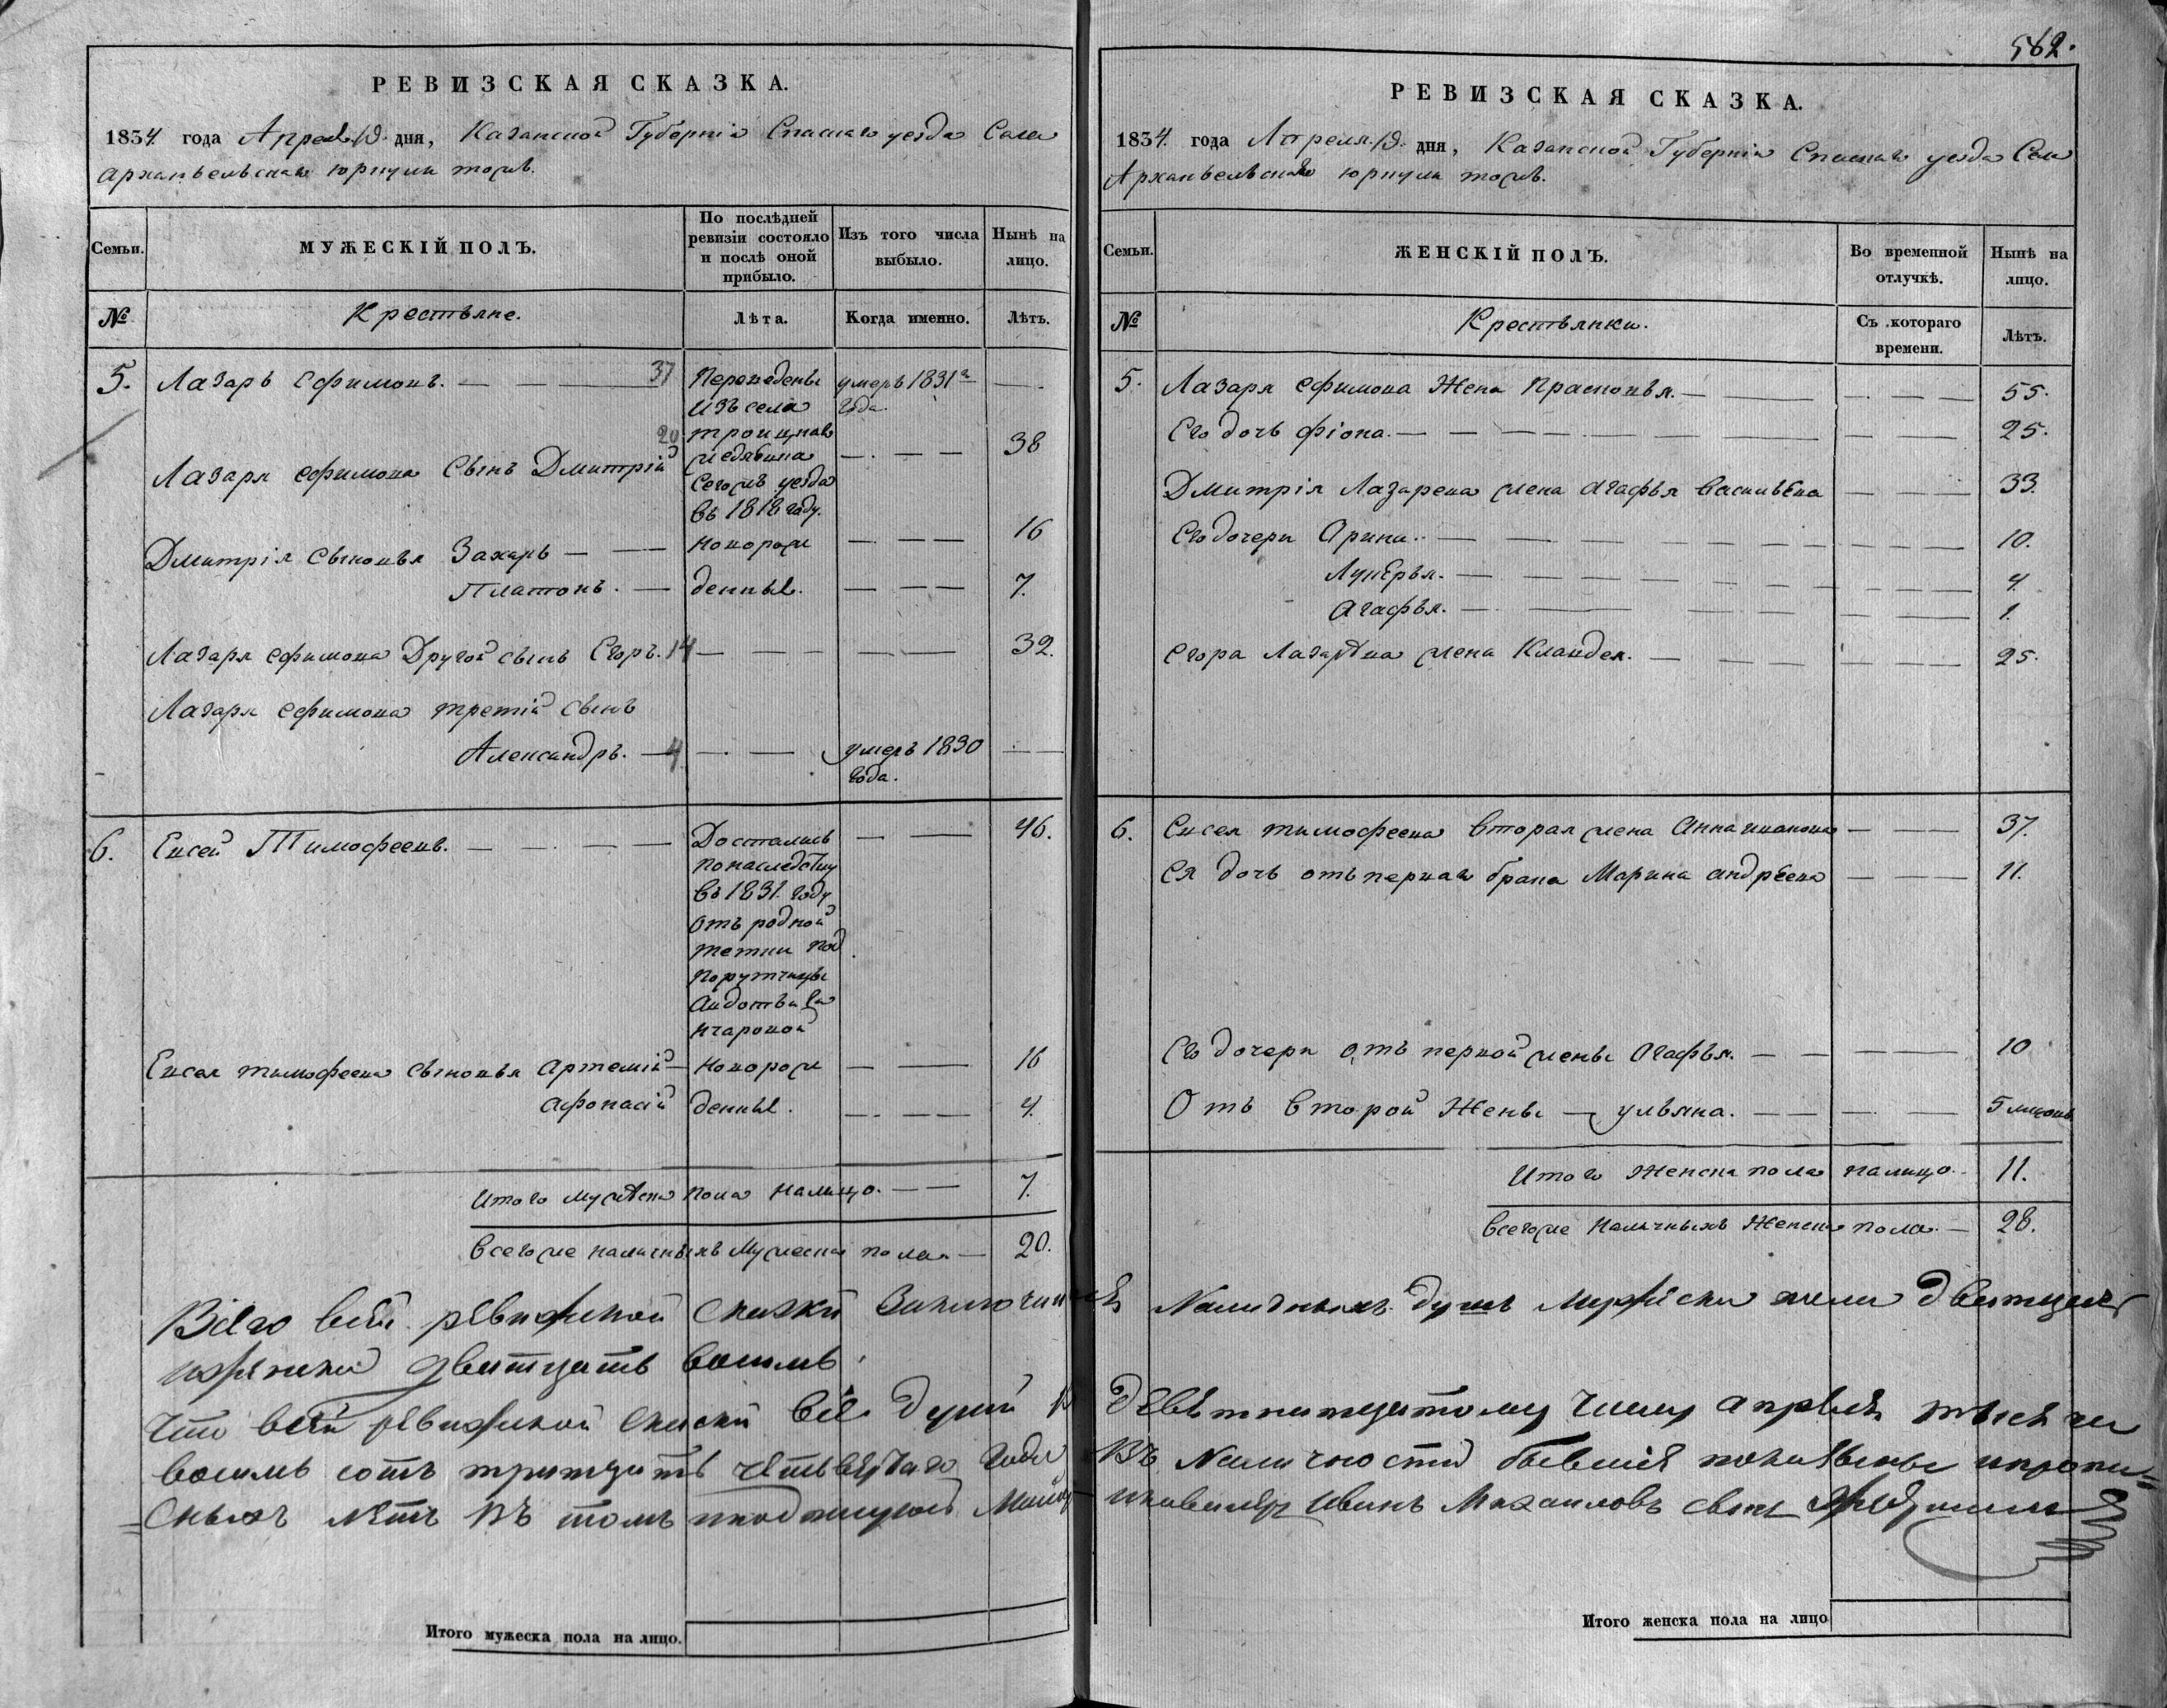 РЕВИЗСКАЯ СКАЗКА.
1834. года Апреля 19. дня, Казанской Губерніи Спаскаго уезда Села
Архангельскаго юркули тожъ.
Семьи.
МУЖЕСКІЙ ПОЛЪ.
По послѣдней ревизіи состояло и послѣ оной прибыло.
Изъ того числа выбыло.
Нынѣ на лицо.
№
Крестьяне.
Лѣта.
Когда именно.
Лѣтъ.
5. Лазарь Ефимовъ. — — — 37 Переведены умеръ 1831го — .
изъ села года.
20 троицкаго
Лазаря Ефимова сынъ Дмитрій — . — — 38
сегожъ уезда
въ 1818 году.
Дмитрія сыновья Захаръ — — — Новорож — . — — 16
Платонъ. — денные. — — — 7.
Лазаря Ефимова Другой сынъ Егоръ. 14 — — — — — — 32.
Лазаря Ефимова третій сынъ
Александръ. — 4 — . — умеръ 1830 — . —
года.
6. Евсей Тимофеевъ. — — . — — Достались — — 46.
по наследству
въ 1831. году
отъ родной
тетки под
порутчицы
Авдотьи
Евсея тимофеева сыновья Артемій — Новорож — — 16
Афонасій денные. — . — — 4.
Итого мужеска пола налицо. — — 7.
Всегоже наличныхъ мужеска пола. — 20.
Итого мужеска пола на лицо.
562.
РЕВИЗСКАЯ СКАЗКА.
1834. года Апреля. 19. дня, Казанской Губерніи Спаскаго уезда Села
Архангельскаго юркули тожъ.
Семьи.
ЖЕНСКІЙ ПОЛЪ.
Во временной отлучкѣ.
Нынѣ на лицо.
№
Крестьянки.
Съ котораго времени.
Лѣтъ.
5. Лазаря Ефимова Жена Прасковья. — — — . — — 55.
Его дочь Фіона. — — — — — — — — — 25.
Дмитрія Лазарева жена Агафья Васильева — — — 33.
Его дочери Арина. — — — — — — — — — 10.
Лукерья. — — — — — — — — — 4.
Агафья. — — — — — — — 1.
Егора Лазарева жена Клавдея. — — — — — — — 25.
6. Евсея тимофеева вторая жена Анна иванова — — — 37.
Ея дочь отъ перваго брака Марина андреева — — — 11.
Его дочери отъ первой жены Агафья. — — — — 10
Отъ второй Жены — ульяна. — — — . — 5 месецовъ
Итого Женска пола налицо. 11.
Всегоже наличныхъ Женска пола. — 28.
Всего всей ревижской сказки заключаится наличныхъ душъ мужеска пола дватцать
женска дватцать восимь.
Что всей ревижской скаски все душы к девятнатцатому числу апреля тысяча
восимь сотъ тритцать четвертаго года въ наличности бывшия показаны ипропи=
=
Иванъ Михаиловъ сынъ
Итого женска пола на лицо